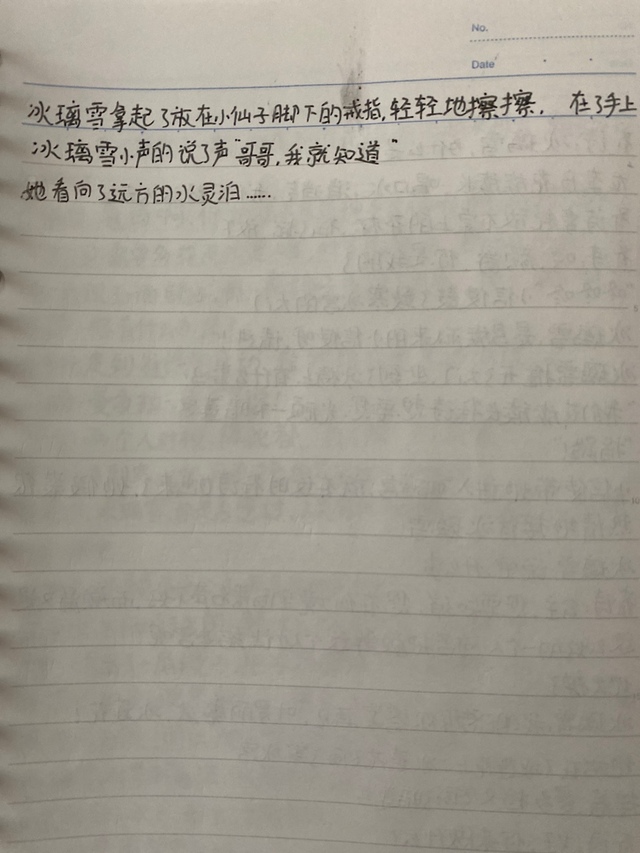 No.
Date
冰璃雪拿起了放在小仙子脚下的戒指,轻轻地擦擦. 在了手上
冰璃雪小声的说了声"哥哥,我就知道"
她看向了远方的水灵泊……